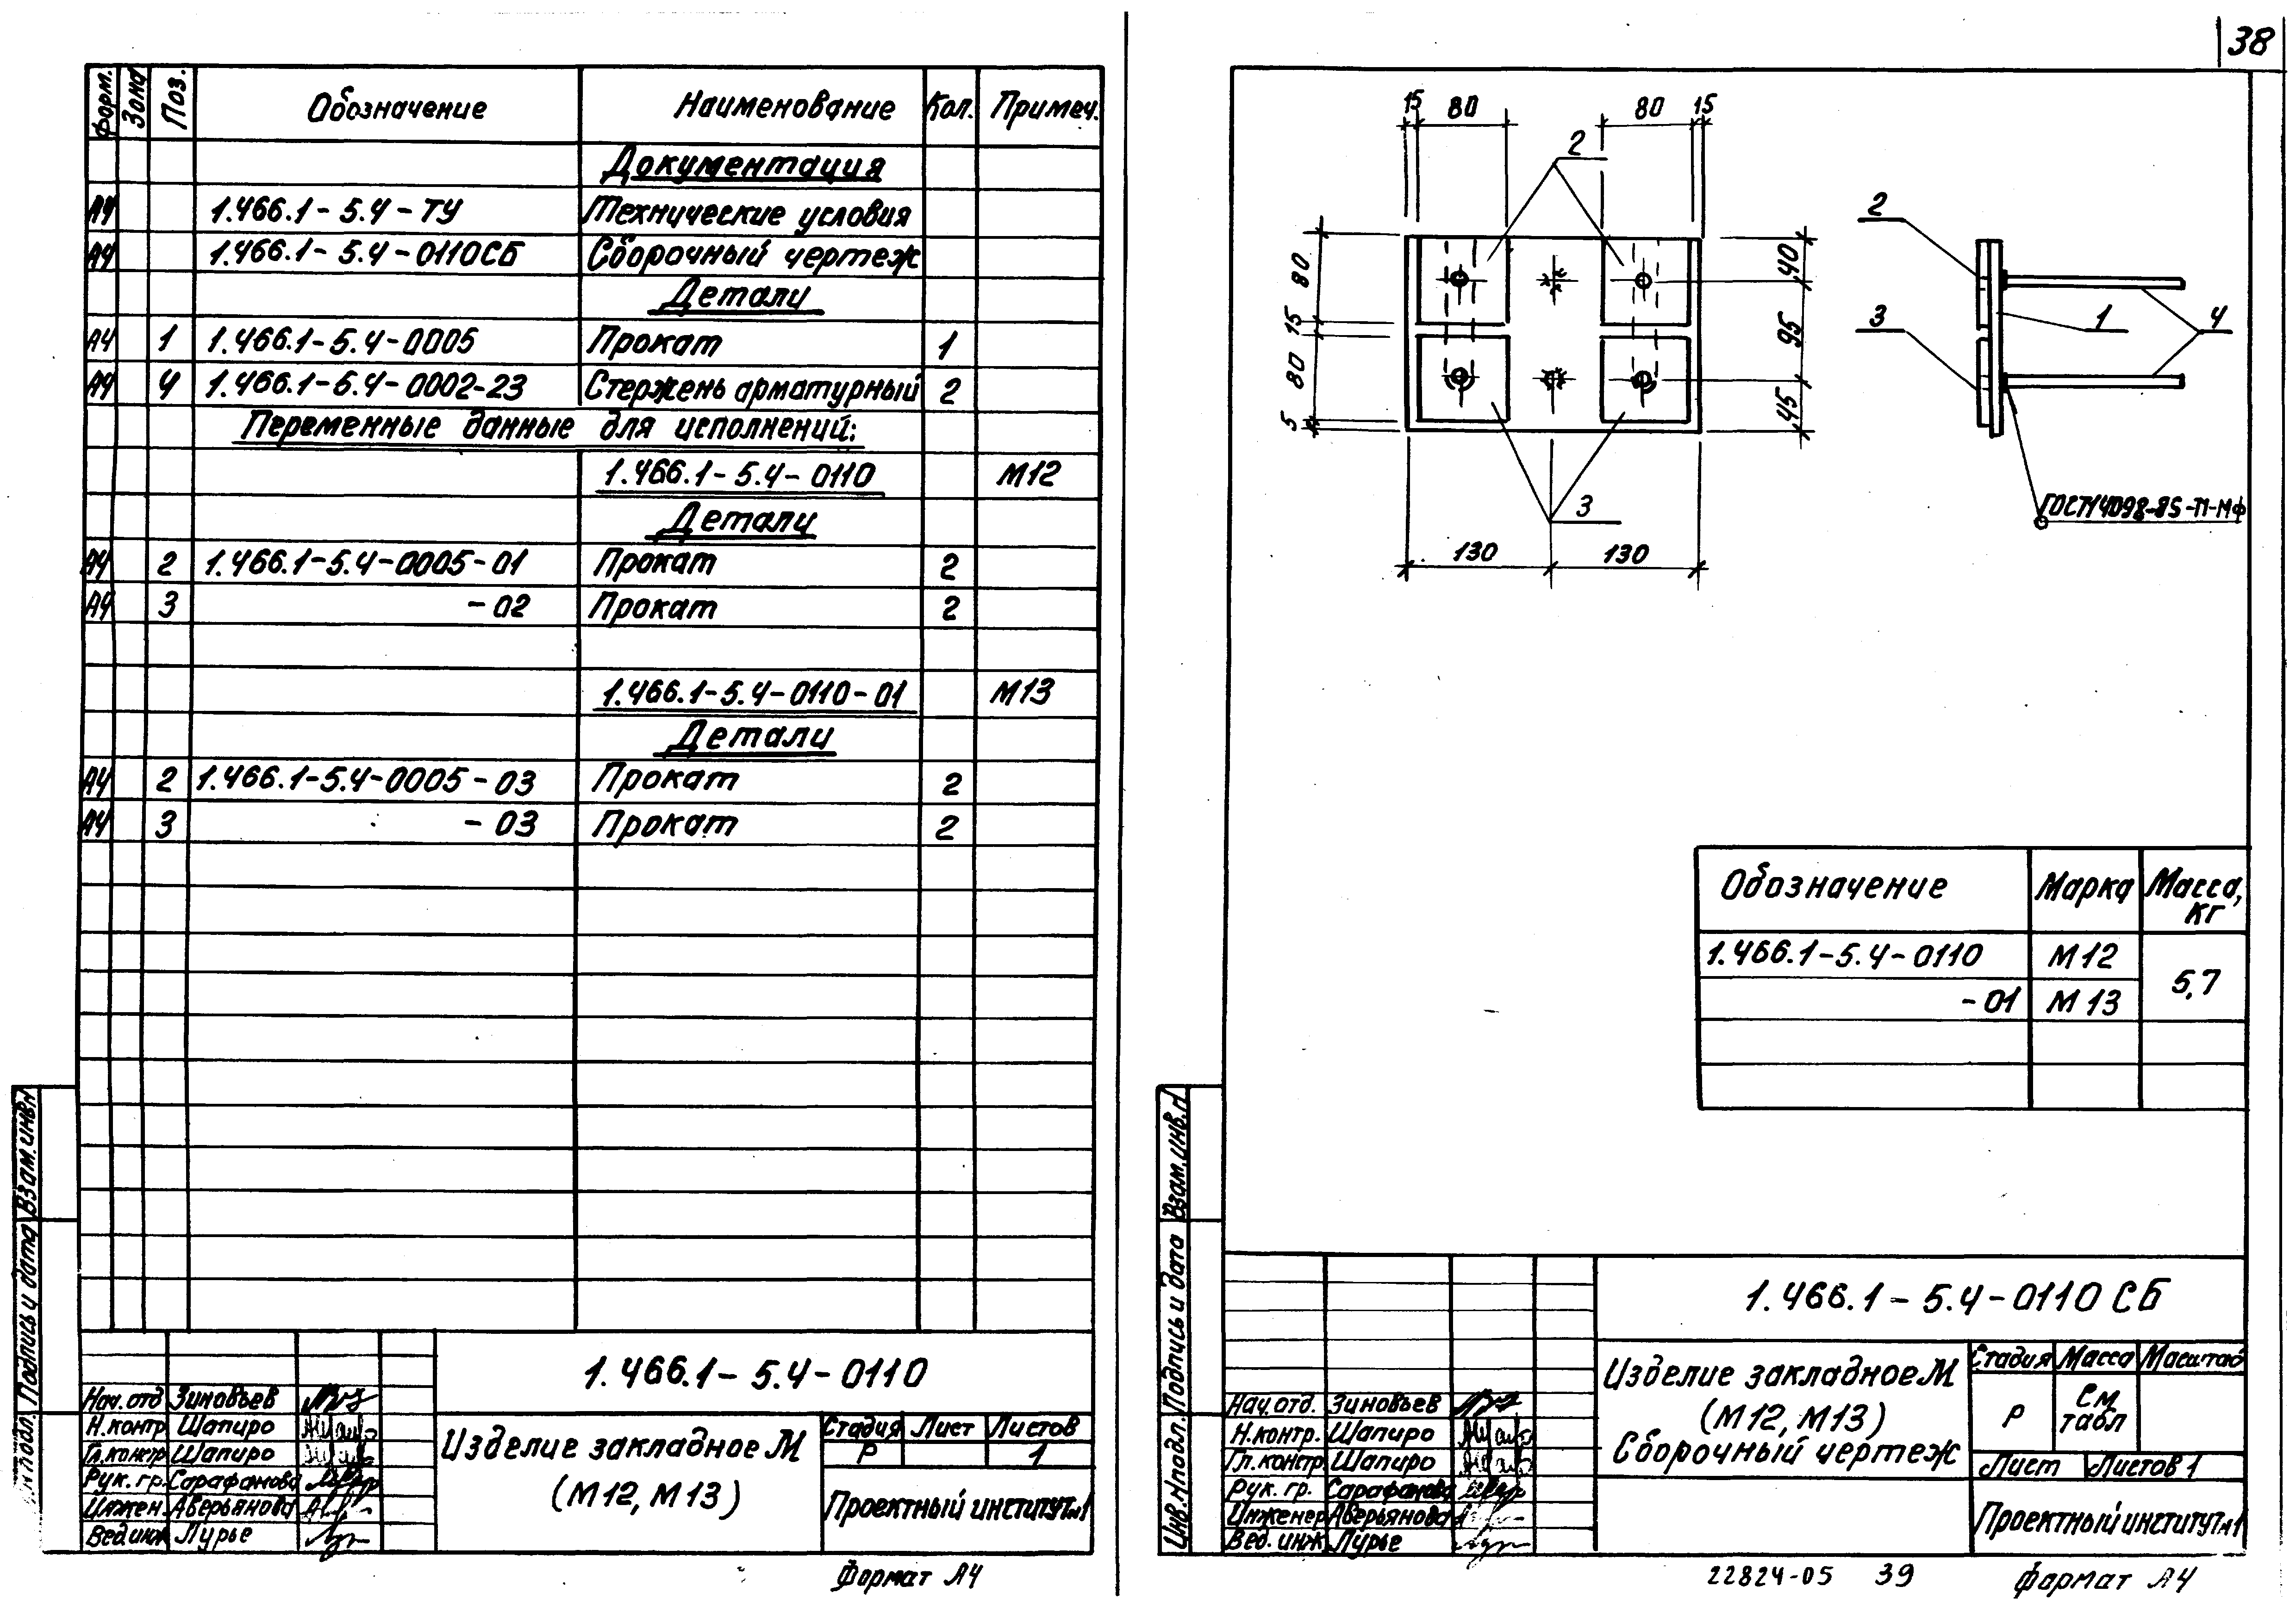 Форм. Зона Поз. Обозначение Наименование Кол. Примеч.
Документация
А4 1.466.1-5.4-ТУ Технические условия
А4 1.466.1-5.4-0110СБ Сборочный чертеж
Детали
А4 1 1.466.1-5.4-0005 Прокат 1
А4 4 1.466.1-5.4-0002-23 Стержень арматурный 2
Переменные данные для исполнений:
1.466.1-5.4-0110 М12
Детали
А4 2 1.466.1-5.4-0005-01 Прокат 2
А4 3 -02 Прокат 2
1.466.1-5.4-0110-01 М13
Детали
А4 2 1.466.1-5.4-0005-03 Прокат 2
А4 3 -03 Прокат 2
Взам.инв.N
Подпись и дата
N подл.
1.466.1-5.4-0110
Нач.отд Зиновьев
Н.контр Шапиро
Гл.констр Шапиро
Рук. гр. Сарафанова
Инжен. Аверьянова
Вед.инж Лурье
Изделие закладное М
(М12, М13)
Стадия Лист Листов
Р 1
Проектный институт N1
Формат А4
38
15 80 80 15
2
80 15 80 5
40 95 45
3
130 130
2
3
1
4
ГОСТ14098-85-Т1-Мф
Обозначение Марка Масса, кг
1.466.1-5.4-0110 М12 5,7
-01 М13
Взам.инв.N
Подпись и дата
Инв.N подл.
1.466.1-5.4-0110 СБ
Нач.отд. Зиновьев
Н.контр. Шапиро
Гл.констр Шапиро
Рук. гр. Сарафанова
Инженер Аверьянова
Вед. инж Лурье
Изделие закладное М
(М12, М13)
Сборочный чертеж
Стадия Масса Масштаб
Р См табл
Лист Листов 1
Проектный институт N1
22824-05 39 Формат А4